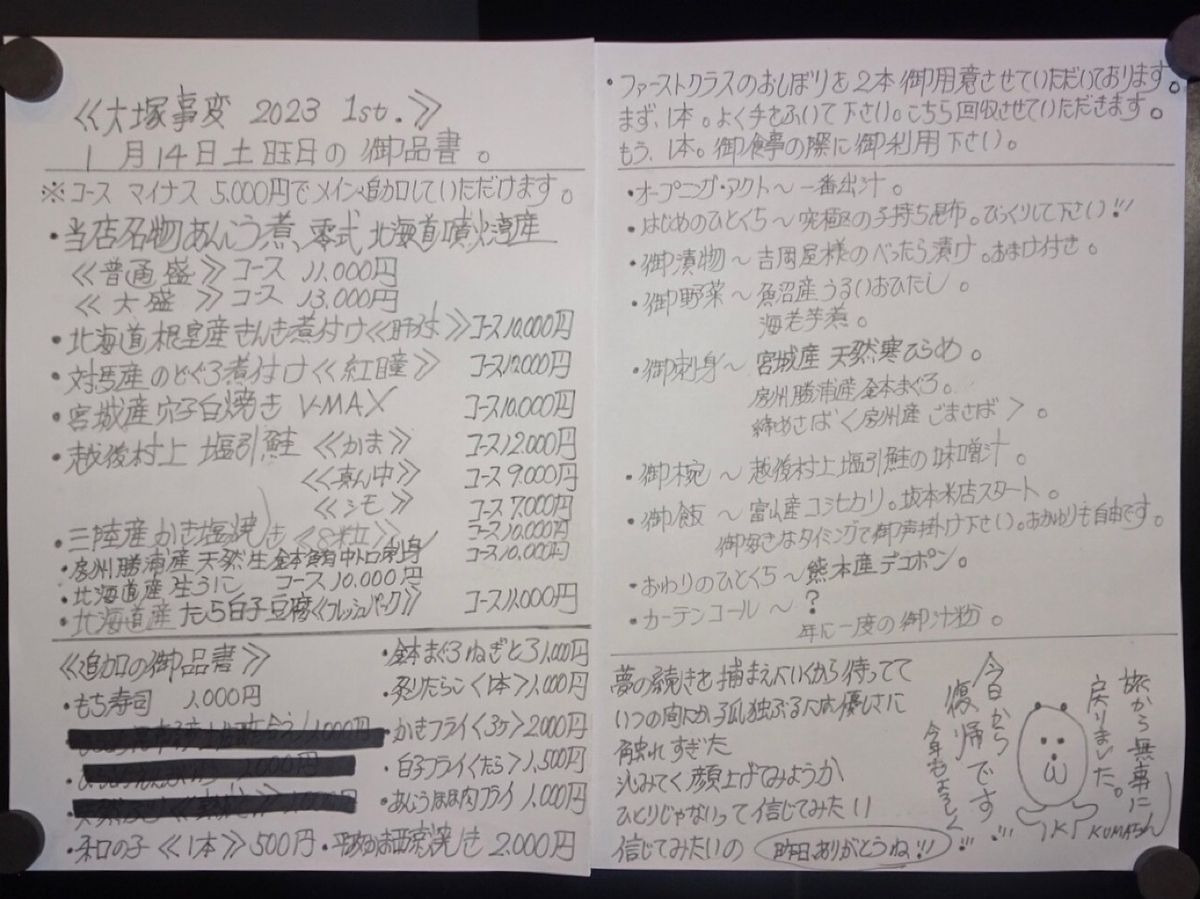 ≪大塚事変 2023 1st.≫
1月14日土旺日の御品書。
※コース マイナス 5.000円でメイン追加していただけます。
・当店名物あんこう煮、零式 北海道噴火湾産
≪普通盛≫コース 11,000円
≪大盛≫コース 13,000円
・北海道根室産きんき煮付け≪時鮭≫コース10,000円
・対馬産のどぐろ煮付け≪紅瞳≫ コース12,000円
・宮城産穴子白焼き V-MAX コース10,000円
・越後村上 塩引鮭 ≪かま≫ コース12,000円
≪真ん中≫ コース 9,000円
≪シモ≫ コース 7,000円
・三陸産かき塩焼き≪8粒≫ コース10,000円
・房州勝浦産天然生金本鮪中トロ刺身 コース10,000円
・北海道産生うに コース10,000円
・北海道産たら白子豆腐≪フレッシュパック≫ コース11,000円
≪追加の御品書≫
・もち寿司 1,000円
・和の子≪1本≫500円
・金本まぐろねぎとろ1,000円
・炙りたらこ<1本>1,000円
・かきフライ<3ヶ>2000円
・白子フライ<たら>1,500円
・あんこうほほ肉フライ 1,000円
西京焼き 2.000円
・ファーストクラスのおしぼりを2本御用意させていただいております。
まず、1本。よく手をふいて下さい。こちら回収させていただきます。
もう、1本。御食事の際に御利用下さい。
・オープニング・アクト〜一番出汁。
・はじめのひとくち〜究極の子持ち昆布。びっくりして下さい!!!
・御漬物〜吉岡屋様のべったら漬け。おまけ付き。
・御野菜〜魚沼産うるいおひたし。
海老芋煮。
・御刺身〜宮城産 天然寒ひらめ。
房州勝浦産金本まぐろ。
締めさば<房州産ごまさば>。
・御椀〜越後村上塩引鮭の味噌汁。
・御飯〜富山産コシヒカリ。坂本米店スタート。
御好きなタイミングで御声掛け下さい。おかわりも自由です。
・おわりのひとくち〜熊本産デコポン。
・カーテンコール〜?
年に一度の御汁粉。
夢の続きを捕まえにいくから待ってて
いつの間にか孤独ぶるには優しさに
触れすぎた
沁みてく顔上げてみようか
ひとりじゃないって信じてみたい
信じてみたいの
昨日、ありがとうね!!
旅から無事に
戻りました。
今日から
復帰です!!!
今年もよろしく!!!
KUMAさん